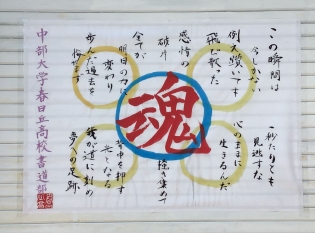 この瞬間は
今しかない
一秒たりとも
見逃すな
例え躓いても
飛び散った
感情の
破片
心のままに
生きるんだ
魂
掻き集めて
全てが
明日の力に
変わり
歩んだ過去を
背中を押す
光となる
我が道に刻め
夢への足跡
中部大学春日丘高校書道部